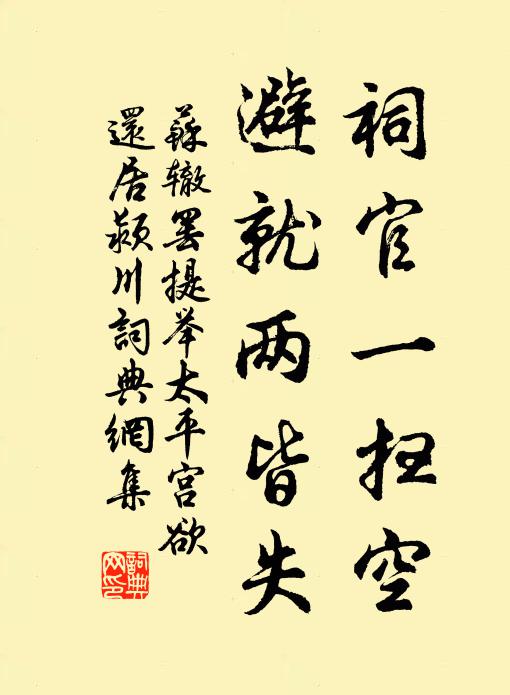 祠官一扫空
避就两皆失
蘇辙罢提举太平宫欲
還居颍川詞典網集
詞典网印